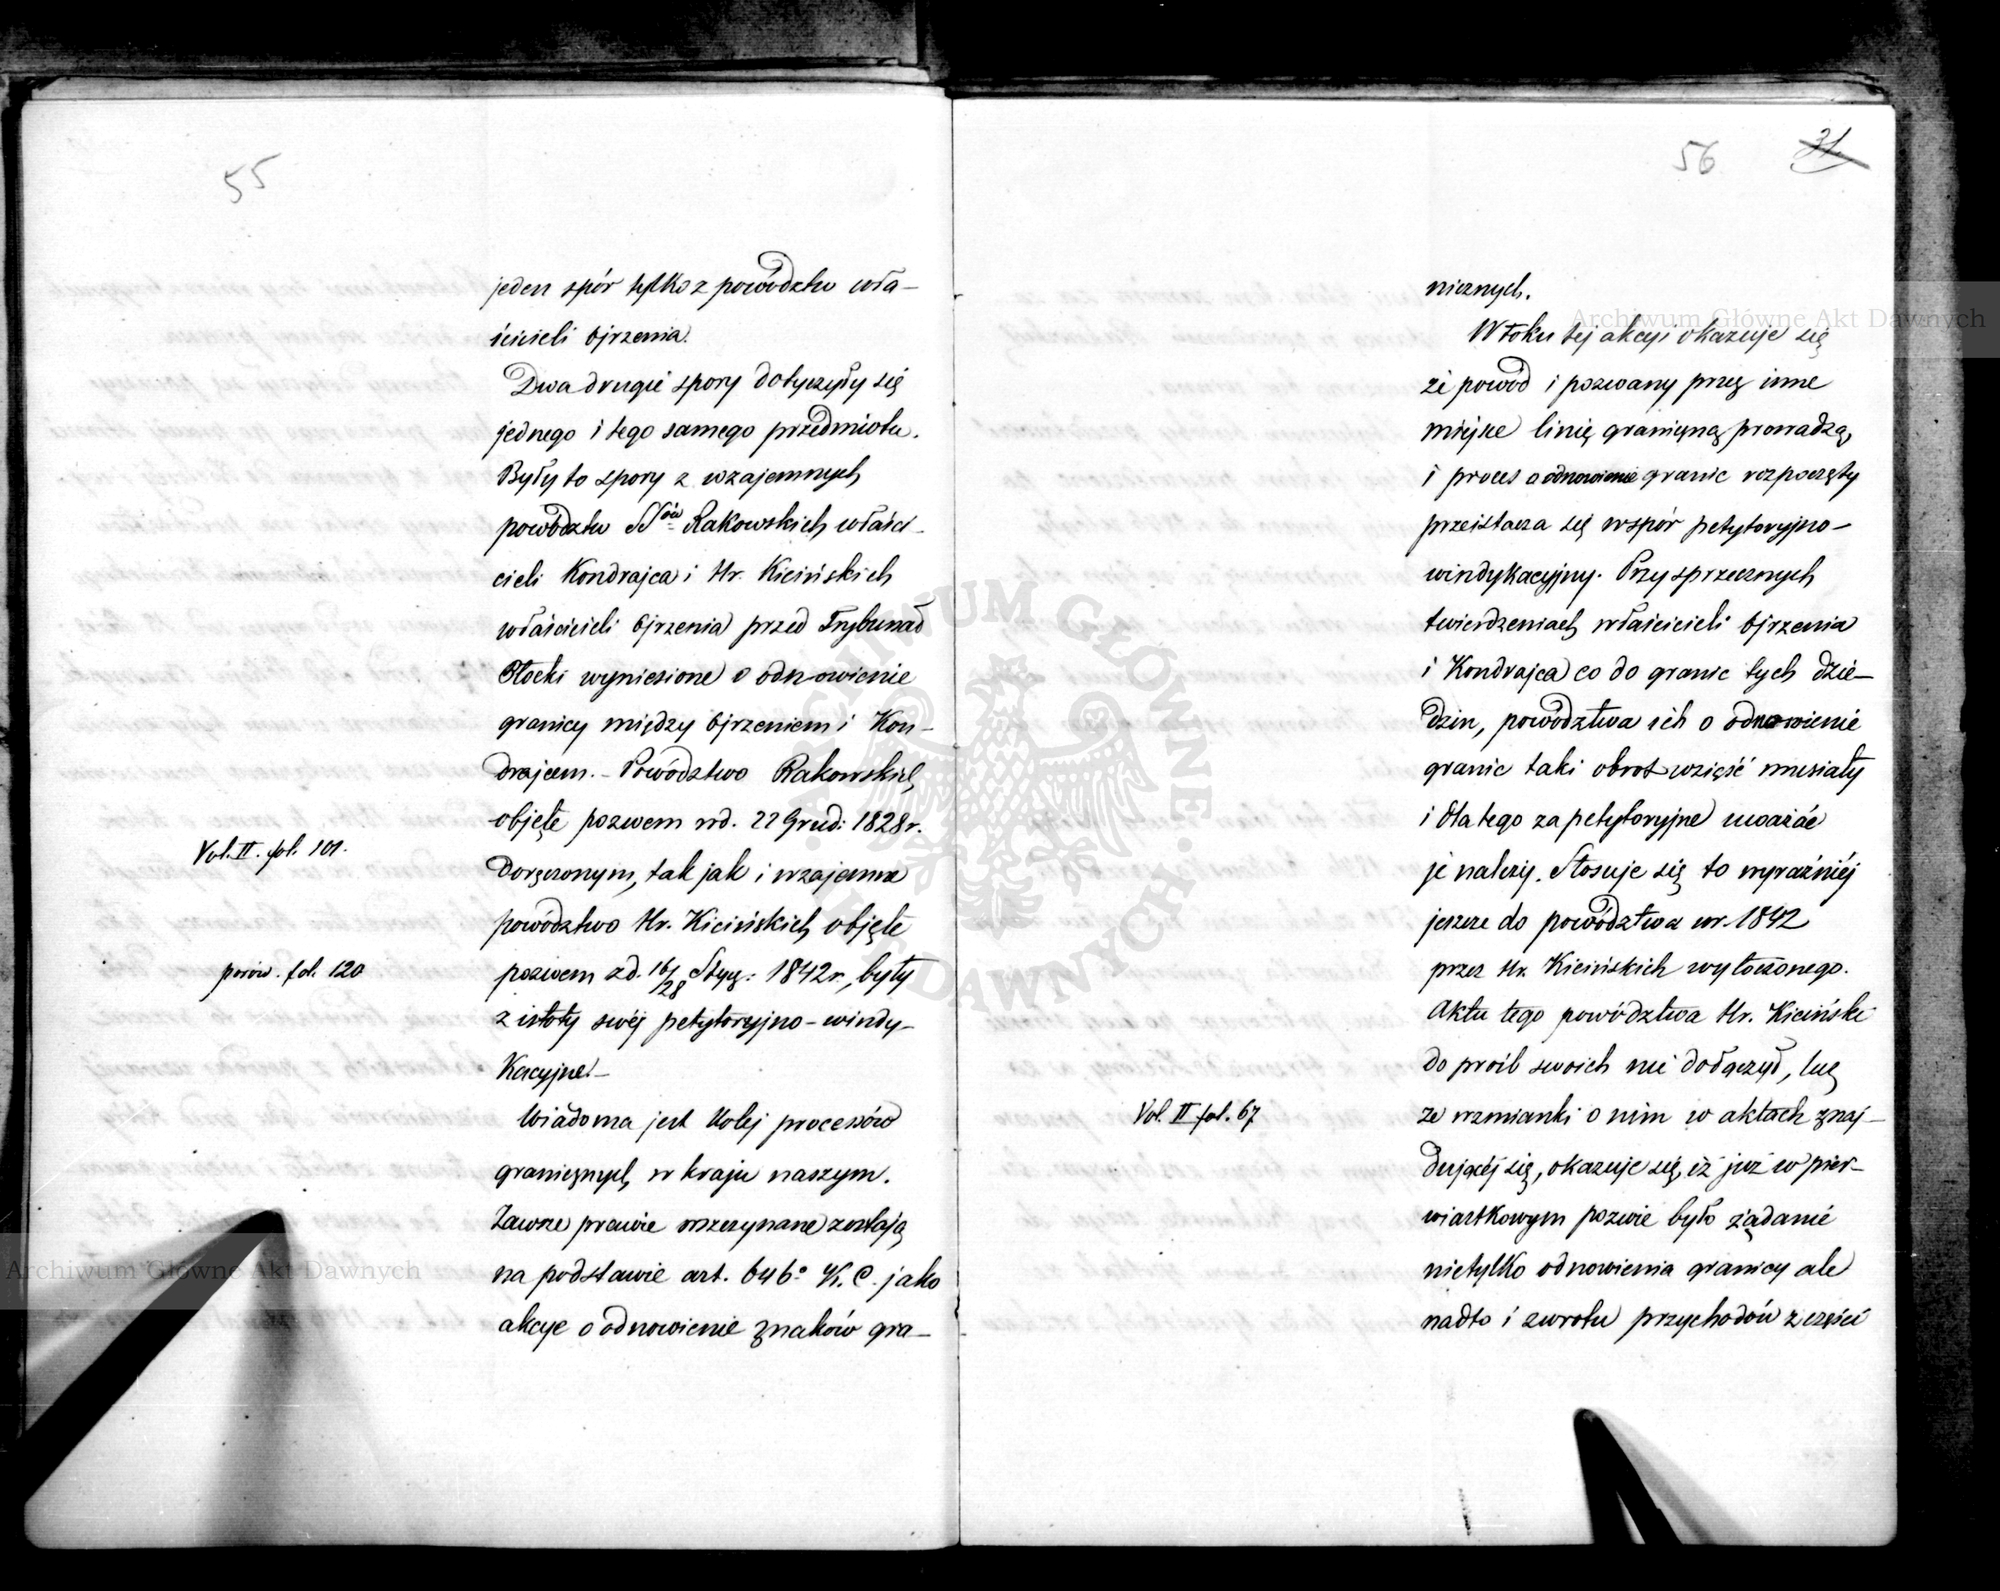 55
jeden spór tylko z powództw wła-
ścicieli Ojrzenia.
Dwa drugie spory dotyczyły się
jednego i tego samego przedmiotu.
Były to spory z wzajemnych
powództw SSów Rakowskich właści-
cieli Kondrajca i Hr. Kicińskich
właścicieli Ojrzenia przed Trybunał
Płocki wyniesione o odnowienie
granicy między Ojrzeniem i Kon-
drajcem. - Powództwo Rakowskich
objęte pozwem w d. 22 Grud: 1828 r.
Vol. II. fol. 101.
doręczonym, tak jak i wzajemne
powództwo Hr. Kicińskich objęte
porów. fol. 120
pozwem z d. 16/28 Stycz: 1842 r., były
z istoty swéj petytoryjno-windy-
kacyjne. -
Wiadoma jest kolej procesów
granicznych w kraju naszym.
Zawsze prawie wszczynane zostają
na podstawie art. 646o K. C. jako
akcye o odnowienie znaków gra-
56 31.
nicznych.
W toku tej akcyi okazuje się
że powód i pozwany przez inne
miejsce linię graniczną prowadzą,
i proces o odnowienie granic rozpoczęty
przeistacza się w spór petytoryjno-
windykacyjny. Przy sprzecznych
twierdzeniach właścicieli Ojrzenia
i Kondrajca co do granic tych dzie-
dzin, powództwa ich o odnowienie
granic taki obrot wziąść musiały
i dla tego za petytoryjne uważać
je należy. Stosuje się to wyraźniéj
jeszcze do powództwa w r. 1842
przez Hr. Kicińskich wytoczonego.
Aktu tego powództwa Hr. Kiciński
do próśb swoich nie dołączył, lecz
Vol. II fol. 67
ze wzmianki o nim w aktach znaj-
dującéj się, okazuje się, iż już w pier-
wiastkowym pozwie było żądanie
nietylko odnowienia granicy ale
nadto i zwrotu przychodów z części
Archiwum Główne Akt Dawnych
Archiwum Główne Akt Dawnych
ARCHIWUM GŁÓWNE AKT DAWNYCH